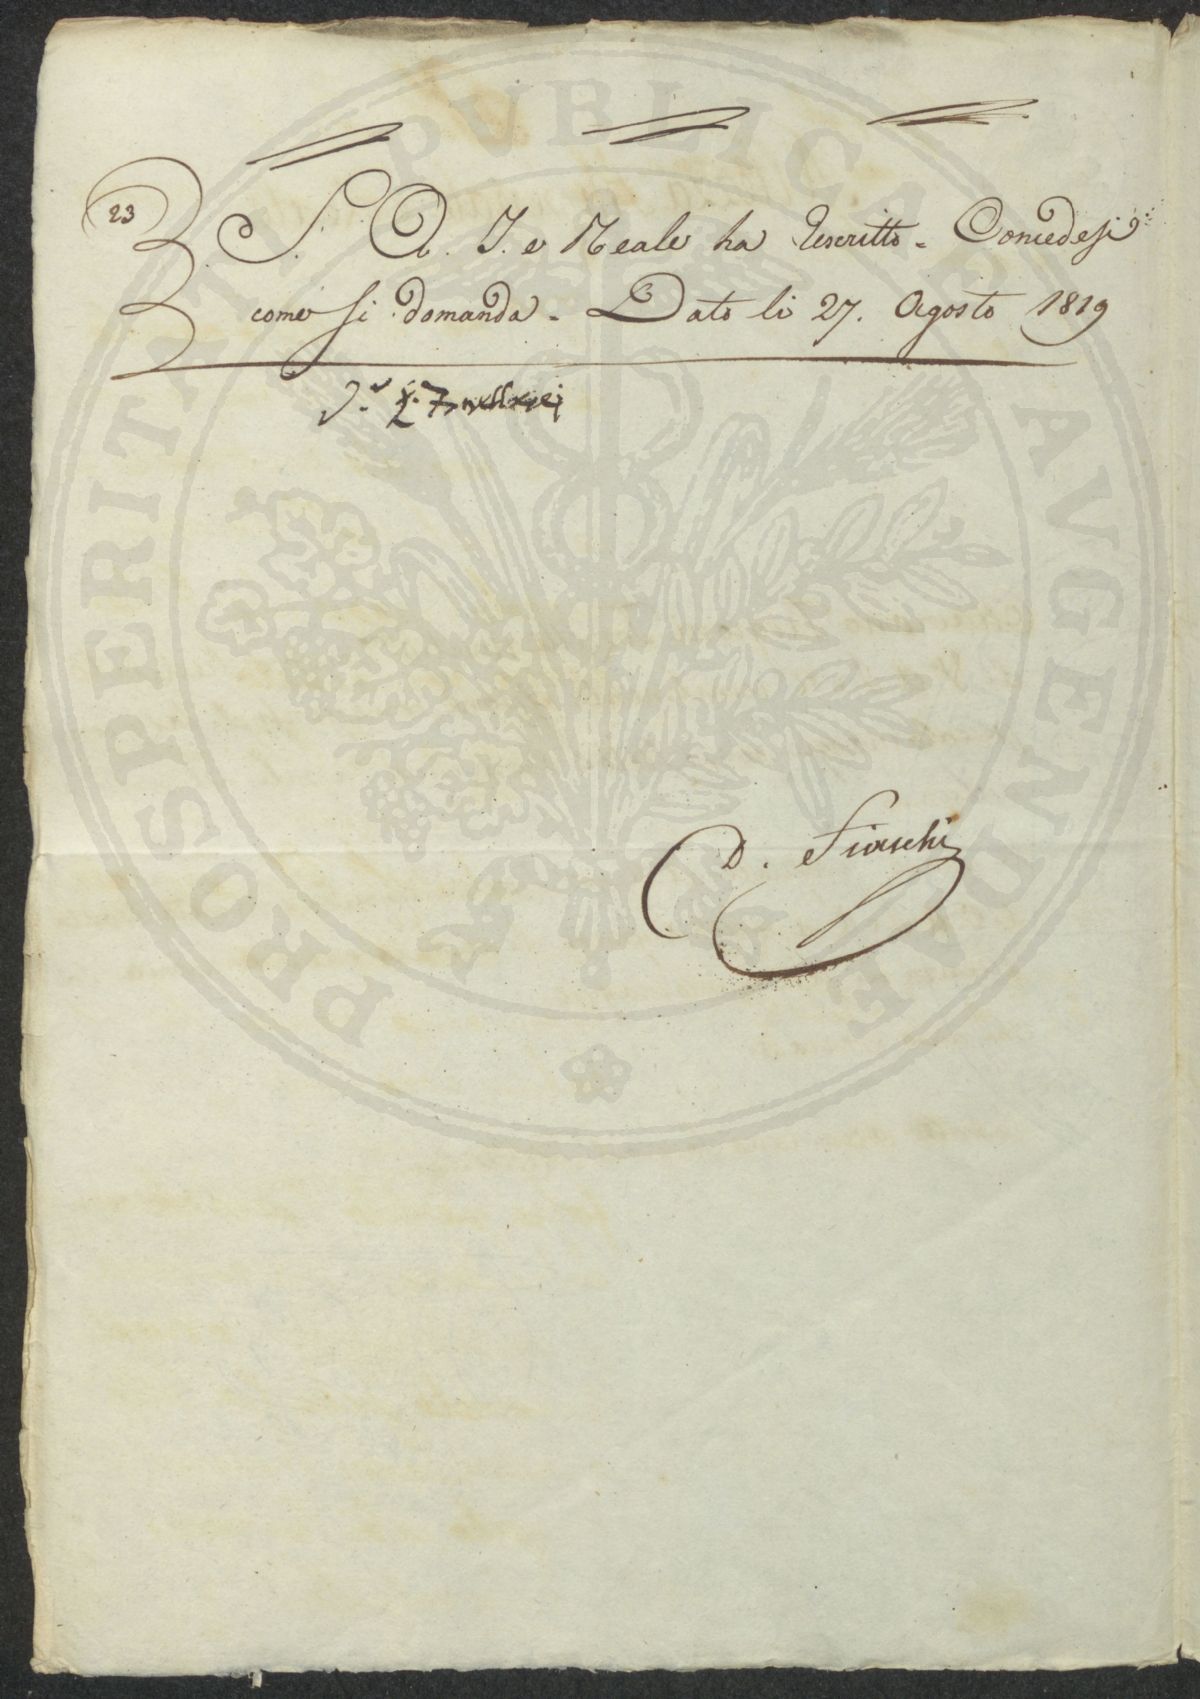 23
S. A. I. e Reale ha Rescritto - Concedesi
come Si domanda - Dato li 27. Agosto 1819
D. Fiaschi
PROSPERITATI PVBLICAE AVGENDAE